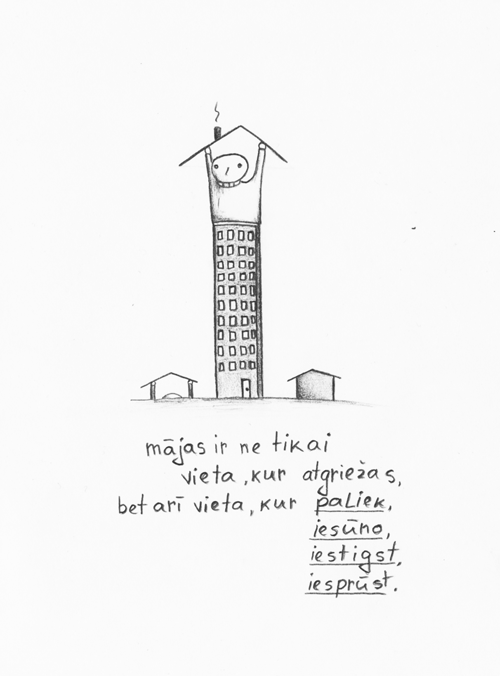 mājas ir ne tikai
vieta, kur atgriežas,
bet arī vieta, kur paliek,
iesūno,
iestigst,
iesprūst.